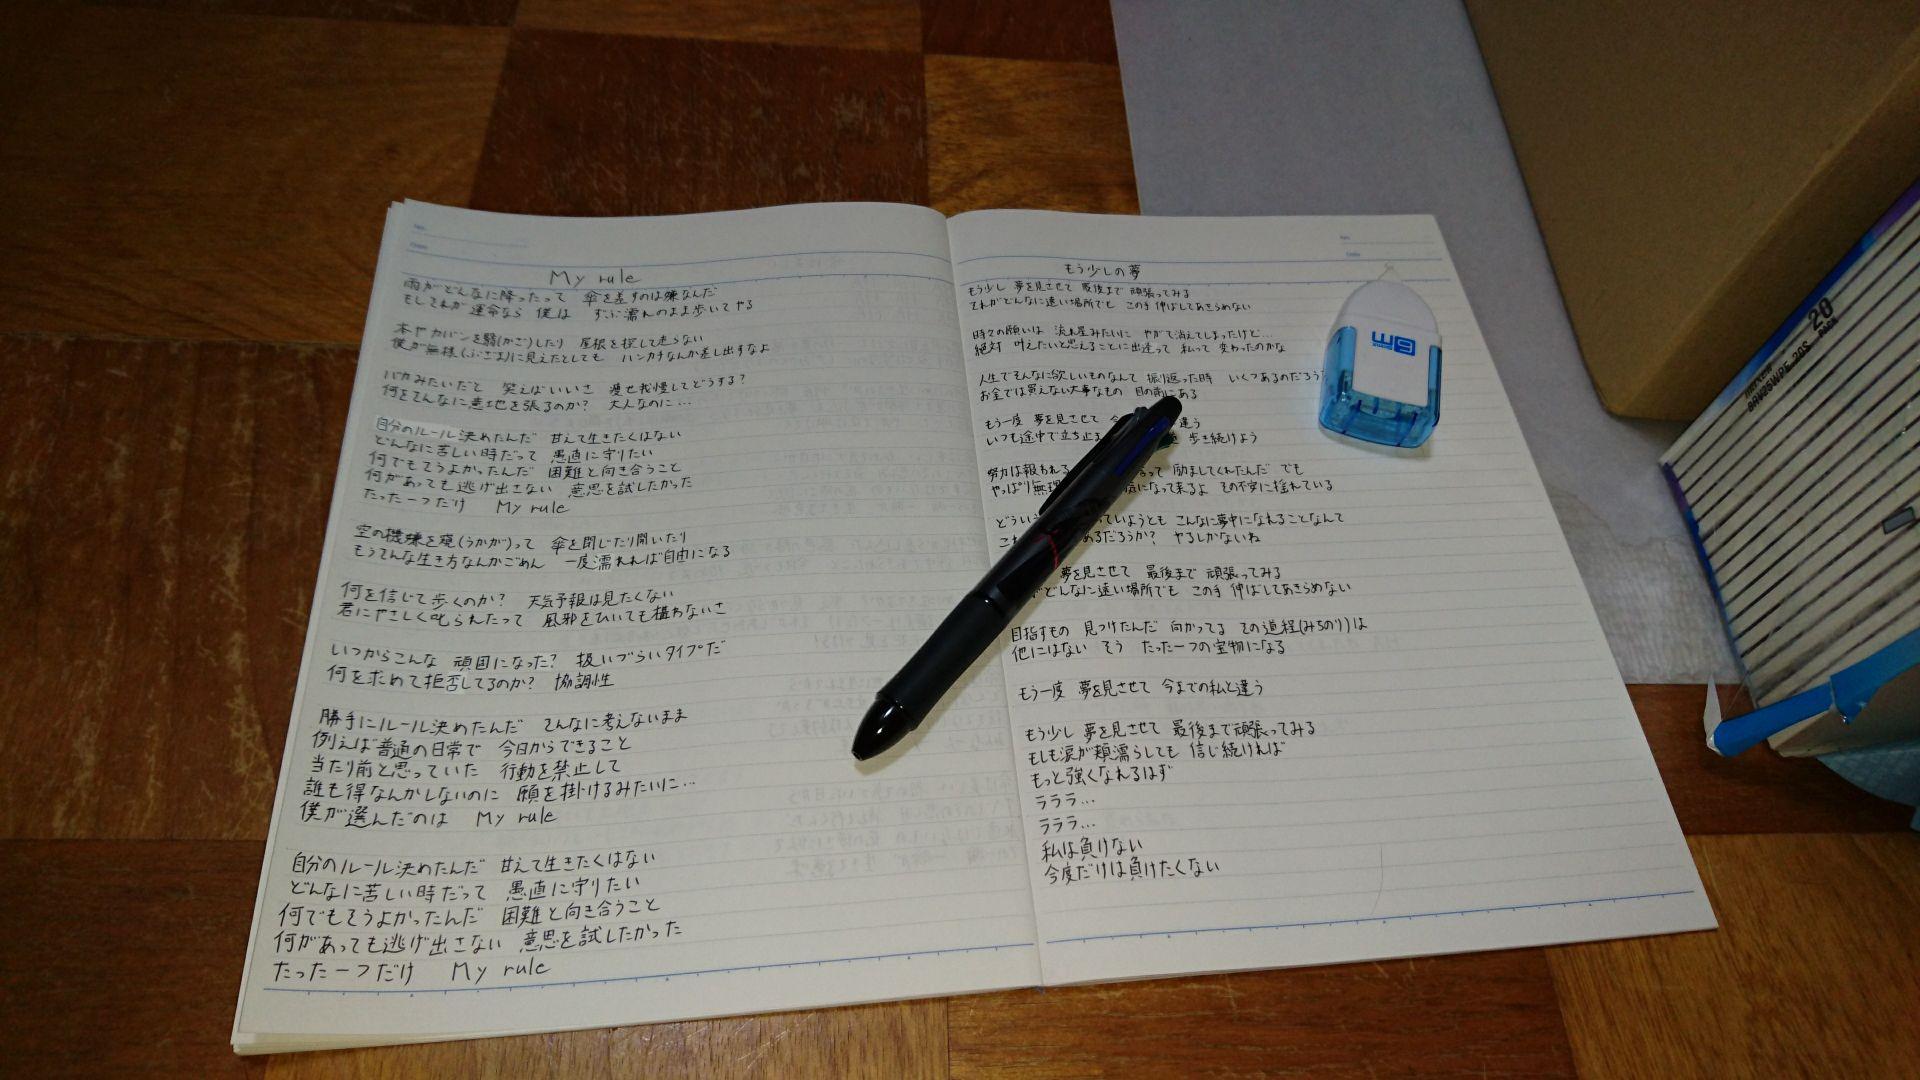 My rule
雨がどんなに降ったって 傘を差すのは嫌なんだ
もしそれが運命なら 僕は ずぶ濡れのまま歩いてやる
本やカバンを翳(かざ)したり 屋根を探して走らない
僕が無様(ぶざま)に見えたとしても ハンカチなんか差し出すなよ
バカみたいだと 笑えばいいさ 痩せ我慢してどうする?
何をそんなに意地を張るのか? 大人なのに…
自分のルール決めたんだ 甘えて生きたくはない
どんなに苦しい時だって 愚直に守りたい
何でもそうよかったんだ 困難と向き合うこと
何があっても逃げ出さない 意思を試したかった
たった一つだけ My rule
空の機嫌を窺(うかが)って 傘を閉じたり開いたり
もうそんな生き方なんかごめん 一度濡れれば自由になる
何を信じて歩くのか? 天気予報は見たくない
君にやさしく叱られたって 風邪をひいても構わないさ
いつからこんな 頑固になった? 扱いづらいタイプだ
何を求めて拒否してるのか? 協調性
勝手にルール決めたんだ そんなに考えないまま
例えば普通の日常で 今日からできること
当たり前と思っていた 行動を禁止して
誰も得なんかしないのに 願を掛けるみたいに…
僕が選んだのは My rule
自分のルール決めたんだ 甘えて生きたくはない
どんなに苦しい時だって 愚直に守りたい
何でもそうよかったんだ 困難と向き合うこと
何があっても逃げ出さない 意思を試したかった
たった一つだけ My rule
もう少しの夢
もう少し 夢を見させて 最後まで 頑張ってみる
それがどんなに遠い場所でも この手 伸ばしてあきらめない
時々の願いは 流れ星みたいに やがて消えてしまったけど…
絶対 叶えたいと思えることに出逢って 私って 変わったのかな
人生でそんなに欲しいものなんて 振り返った時 いくつあるのだろう
お金では買えない大事なもの 目の前にある
もう一度 夢を見させて 違う
いつも途中で立ち止ま 歩き続けよう
努力は報われる って 励ましてくれたんだ でも
やっぱり無理 になって来るよ その不安に揺れている
どういう っていようとも こんなに夢中になれることなんて
これ あるだろうか? やるしかないね
夢を見させて 最後まで 頑張ってみる
どんなに遠い場所でも この手 伸ばしてあきらめない
目指すもの 見つけたんだ 向かってる その道程(みちのり)は
他にはない そう たった一つの宝物になる
もう一度 夢を見させて 今までの私と違う
もう少し 夢を見させて 最後まで頑張ってみる
もしも涙が頬濡らしても 信じ続ければ
もっと強くなれるはず
ラララ…
ラララ…
私は負けない
今度だけは負けたくない
6m
20
PACK